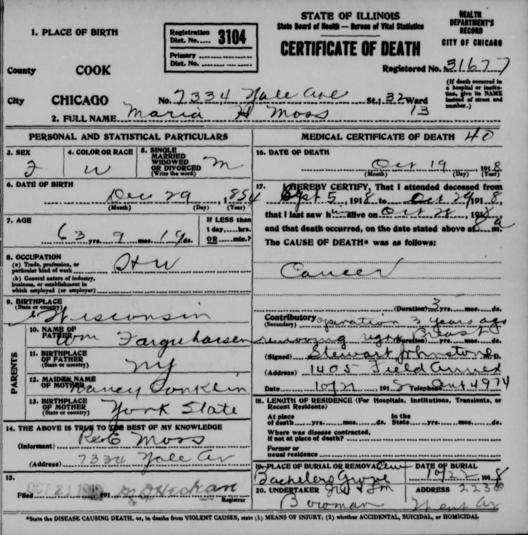 STATE OF ILLINOIS
State Board of Health — Bureau of Vital Statistics
CERTIFICATE OF DEATH
HEALTH DEPARTMENT'S RECORD
CITY OF CHICAGO
Registered No. 31677
(If death occurred in a hospital or institution, give its NAME instead of street and number.)
1. PLACE OF BIRTH
Registration Dist. No. 3104
Primary Dist. No.
County COOK
City CHICAGO No. 7334 Yale Ave St.; 32 Ward
13
2. FULL NAME Maria H Moss
PERSONAL AND STATISTICAL PARTICULARS
3. SEX F
4. COLOR OR RACE W
5. SINGLE MARRIED WIDOWED OR DIVORCED (Write the word) M
6. DATE OF BIRTH
Dec 29, 1854
(Month) (Day) (Year)
7. AGE
63 yrs. 9 mos. 19 ds.
IF LESS than 1 day, hrs. OR min.?
8. OCCUPATION
(a) Trade, profession, or particular kind of work H W
(b) General nature of industry, business, or establishment in which employed (or employer)
9. BIRTHPLACE
(State or country) Wisconsin
PARENTS
10. NAME OF FATHER Wm Farguharsen
11. BIRTHPLACE OF FATHER
(State or country) NY
12. MAIDEN NAME OF MOTHER Nancy Conklin
13. BIRTHPLACE OF MOTHER
(State or country) York State
14. THE ABOVE IS TRUE TO THE BEST OF MY KNOWLEDGE
(Informant) Moss
(Address) 7334 Yale Av
15.
Filed OCT 21 191
Registrar
MEDICAL CERTIFICATE OF DEATH 40
16. DATE OF DEATH
Oct 19 1918
(Month) (Day) (Year)
17. I HEREBY CERTIFY, That I attended deceased from
Sept 5, 1918, to Oct 1918,
that I last saw h alive on Oct 1918
and that death occurred, on the date stated above at a m.
The CAUSE OF DEATH* was as follows:
Cancer
(Duration) 3 yrs. mos. ds.
Contributory operation 3 years ago
(Secondary) removing right Breast
(Signed) Stewart Johnstone
(Address) 1405 Field Annex
Date 10/21 1918 Telephone Cent 4974
18. LENGTH OF RESIDENCE (For Hospitals, Institutions, Transients, or Recent Residents)
At place of death yrs. mos. ds. In the State yrs. mos. ds.
Where was disease contracted, if not at place of death?
Former or usual residence
19. PLACE OF BURIAL OR REMOVAL
Bachelers Grove
DATE OF BURIAL
10/22 1918
20. UNDERTAKER
Bowman
ADDRESS 2236
Av
*State the DISEASE CAUSING DEATH, or, in deaths from VIOLENT CAUSES, state (1) MEANS OF INJURY; (2) whether ACCIDENTAL, SUICIDAL, or HOMICIDAL.